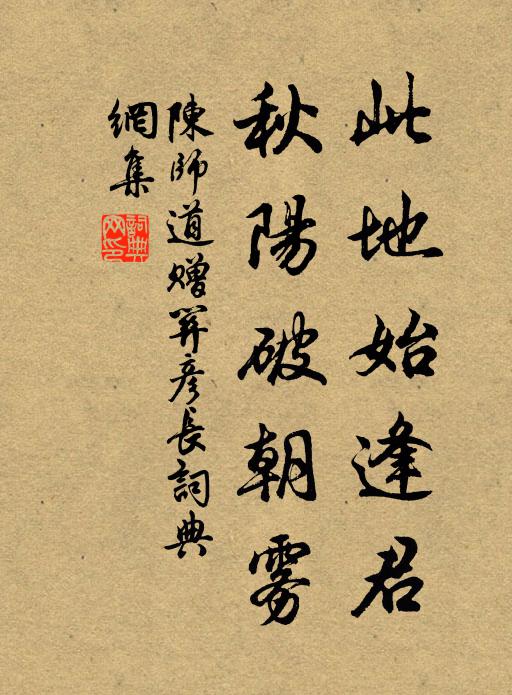 此地始逢君
秋陽破朝雾
陳師道贈羿彦長詞典
網集
詞典
网印